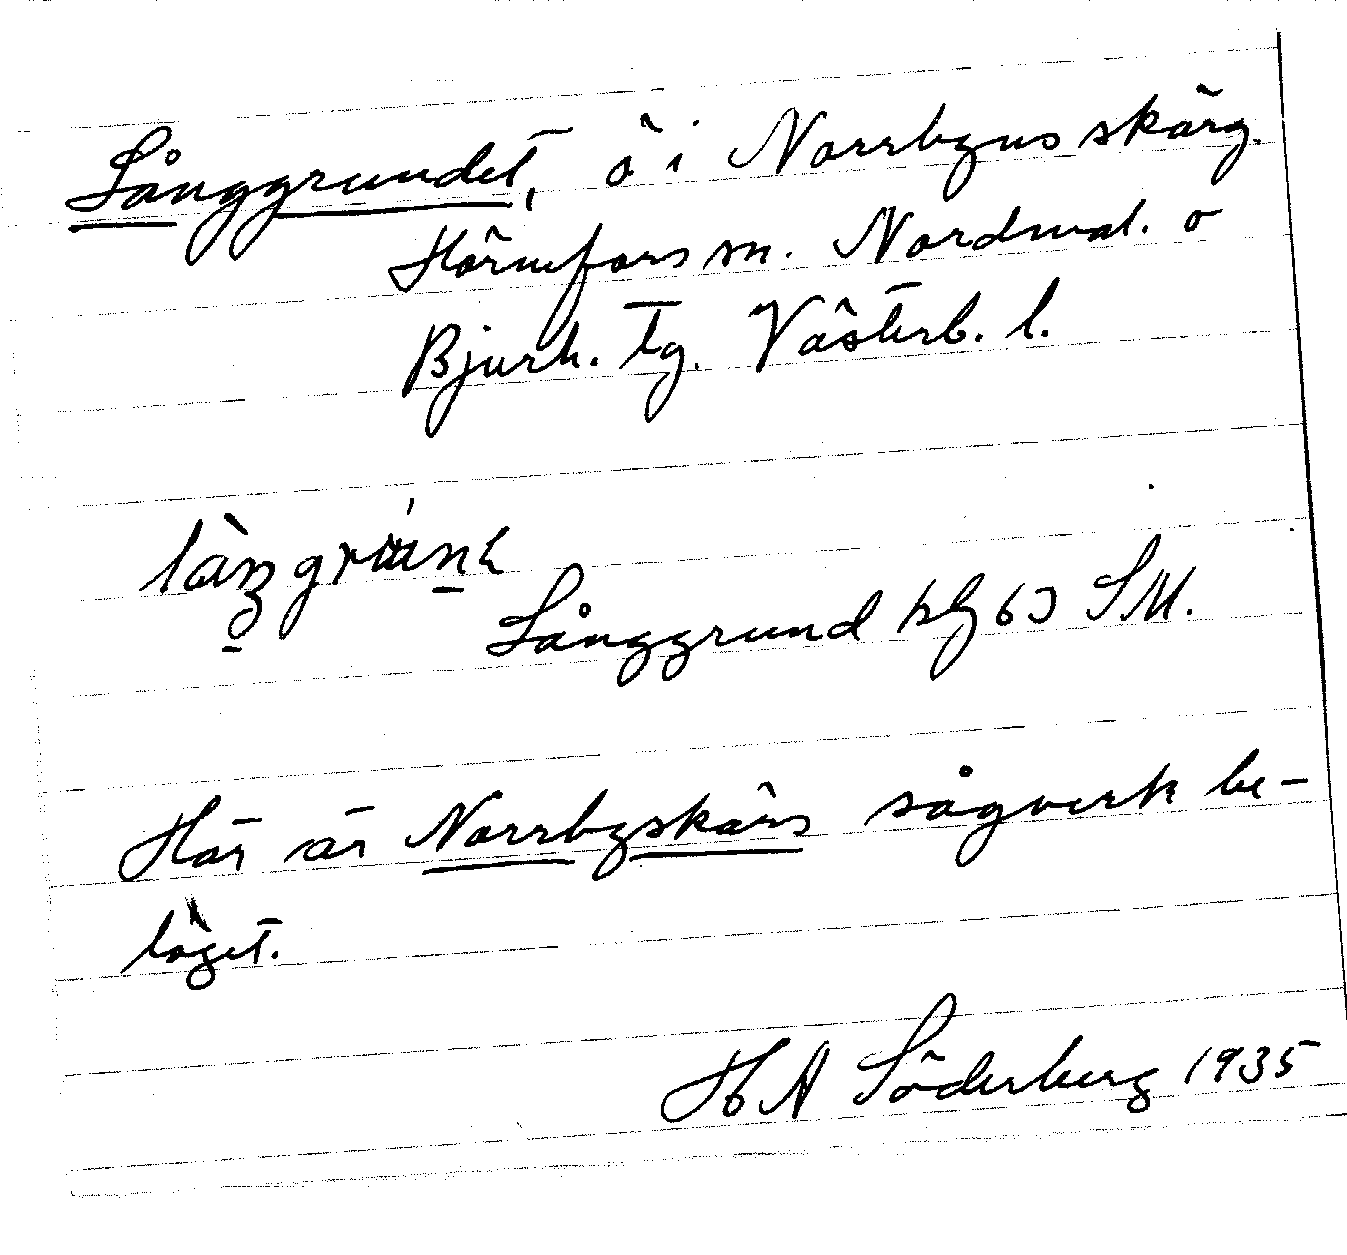 Långgrundet, ö i Norrbyns skärg.
Hörnefors sn. Nordmal. o
Bjurh. tg. Västerb. l.
Långgrund bl 63 SM.
Här är Norrbyskärs sågverk be-
läget.
H A Söderberg 1935